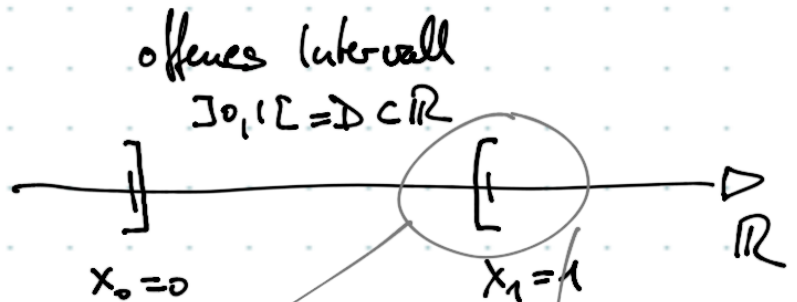 offenes Intervall
]0,1[ = D ⊂ ℝ
] [
ℝ
x₀=0 x₁=1